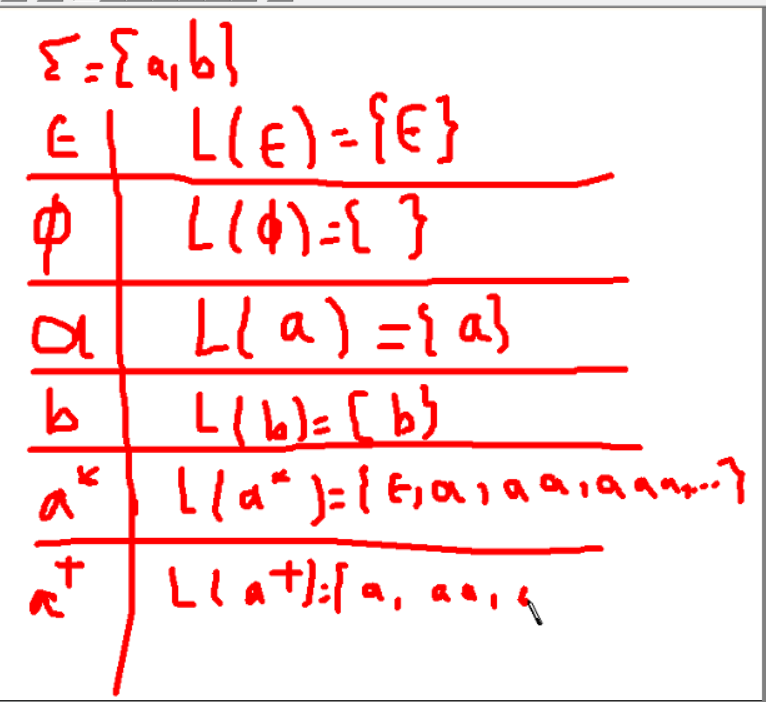 Σ={a,b}
ϵ L(ϵ)={ϵ}
ϕ L(ϕ)={ }
a L(a)={a}
b L(b)={b}
a* L(a*)={ϵ,a,aa,aaa,...}
a⁺ L(a⁺)={a, aa,